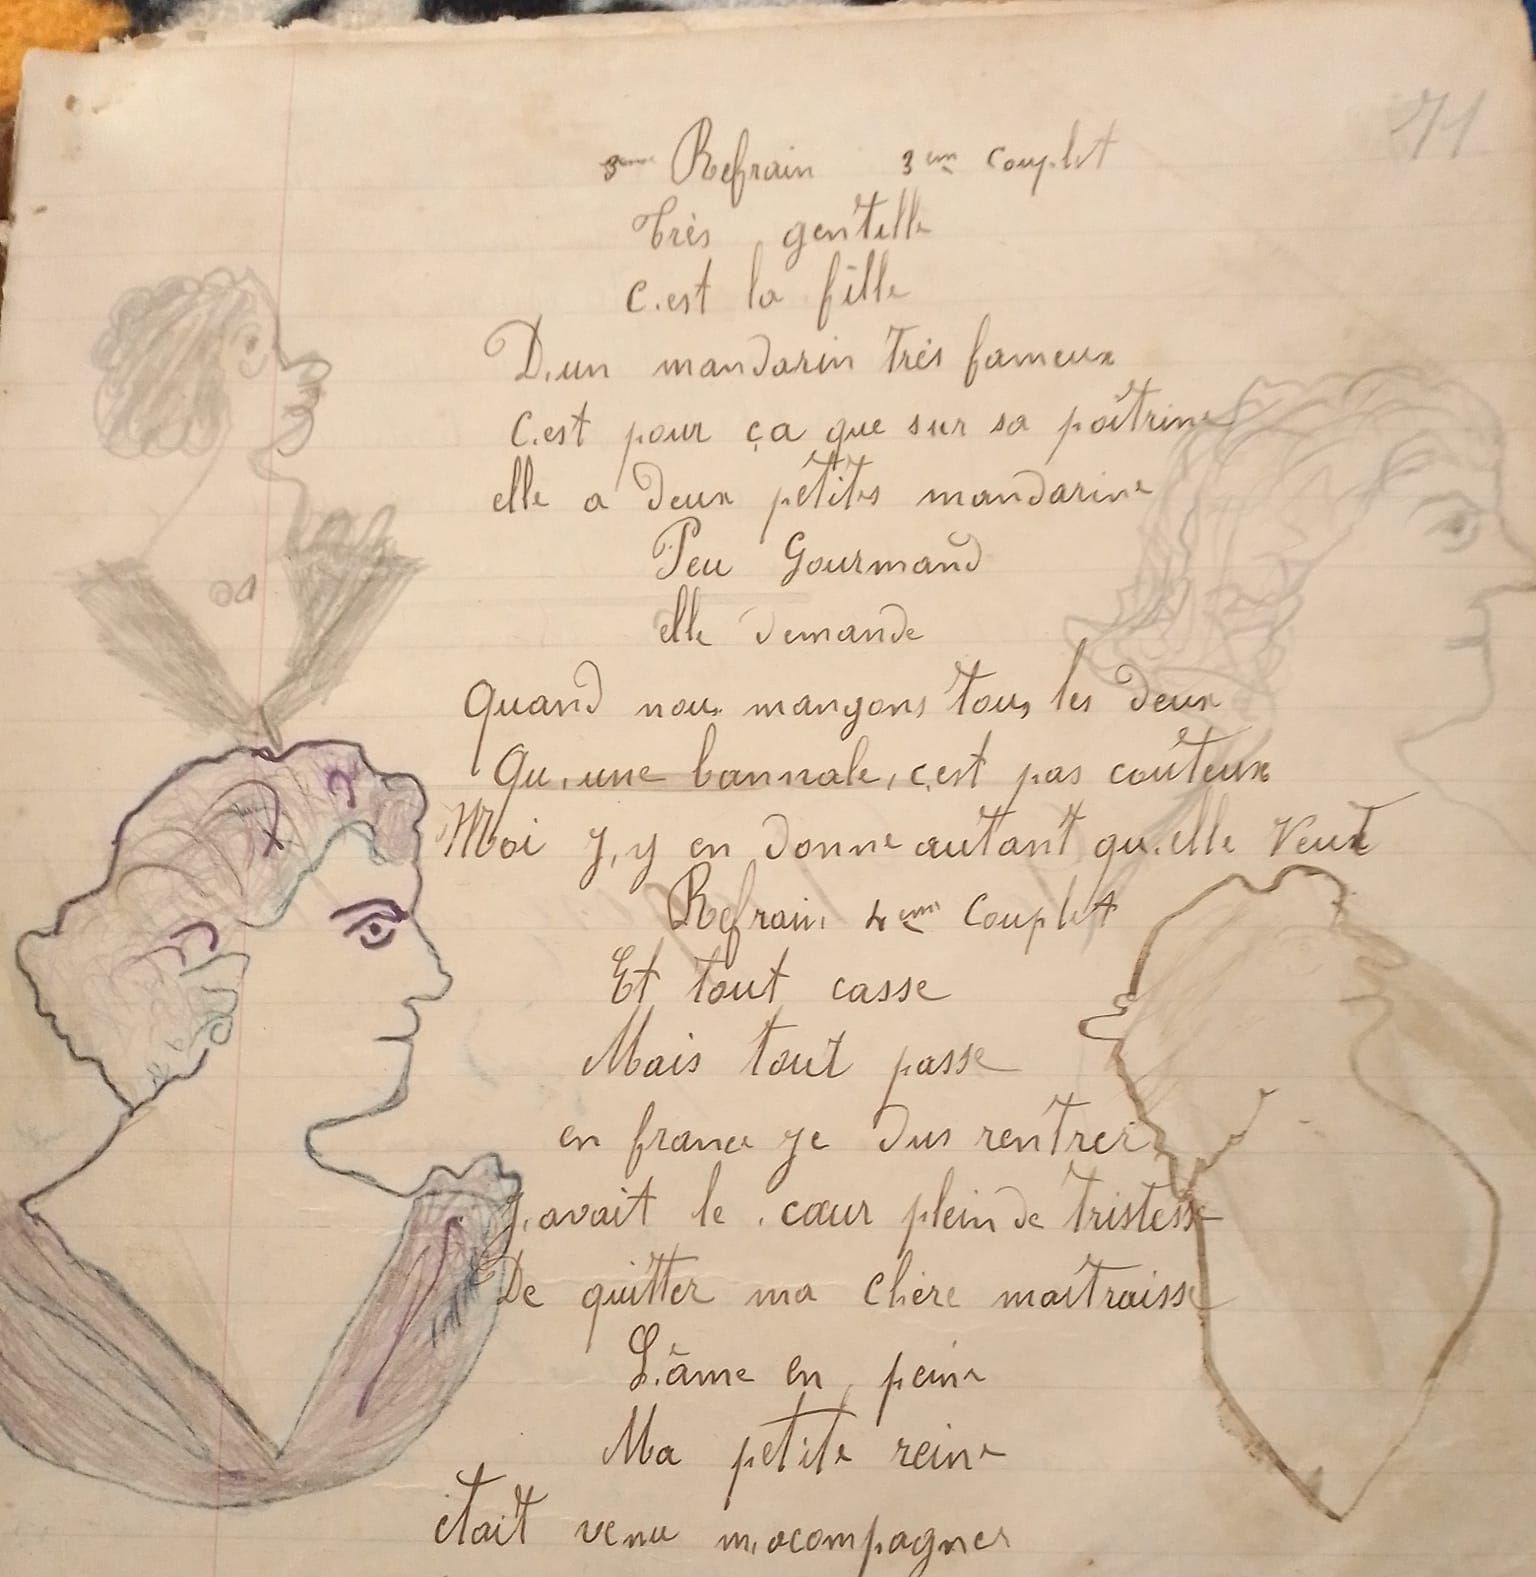 71
3eme Refrain 3em couplet
Très gentille
C'est la fille
D'un mandarin très fameux
C'est pour ça que sur sa poitrine
elle a deux petites mandarine
Peu Gourmand
elle demande
Quand nous mangons tous les deux
Qu'une bannale, c'est pas couteux
Moi j'y en donne autant qu'elle Veut
Refrain 4eme Couplet
Et tout casse
Mais tout passe
en france je dus rentrer
j'avait le cœur plein de tristesse
De quitter ma chère maitraisse
L'âme en peine
Ma petite reine
était venu m'acompagner